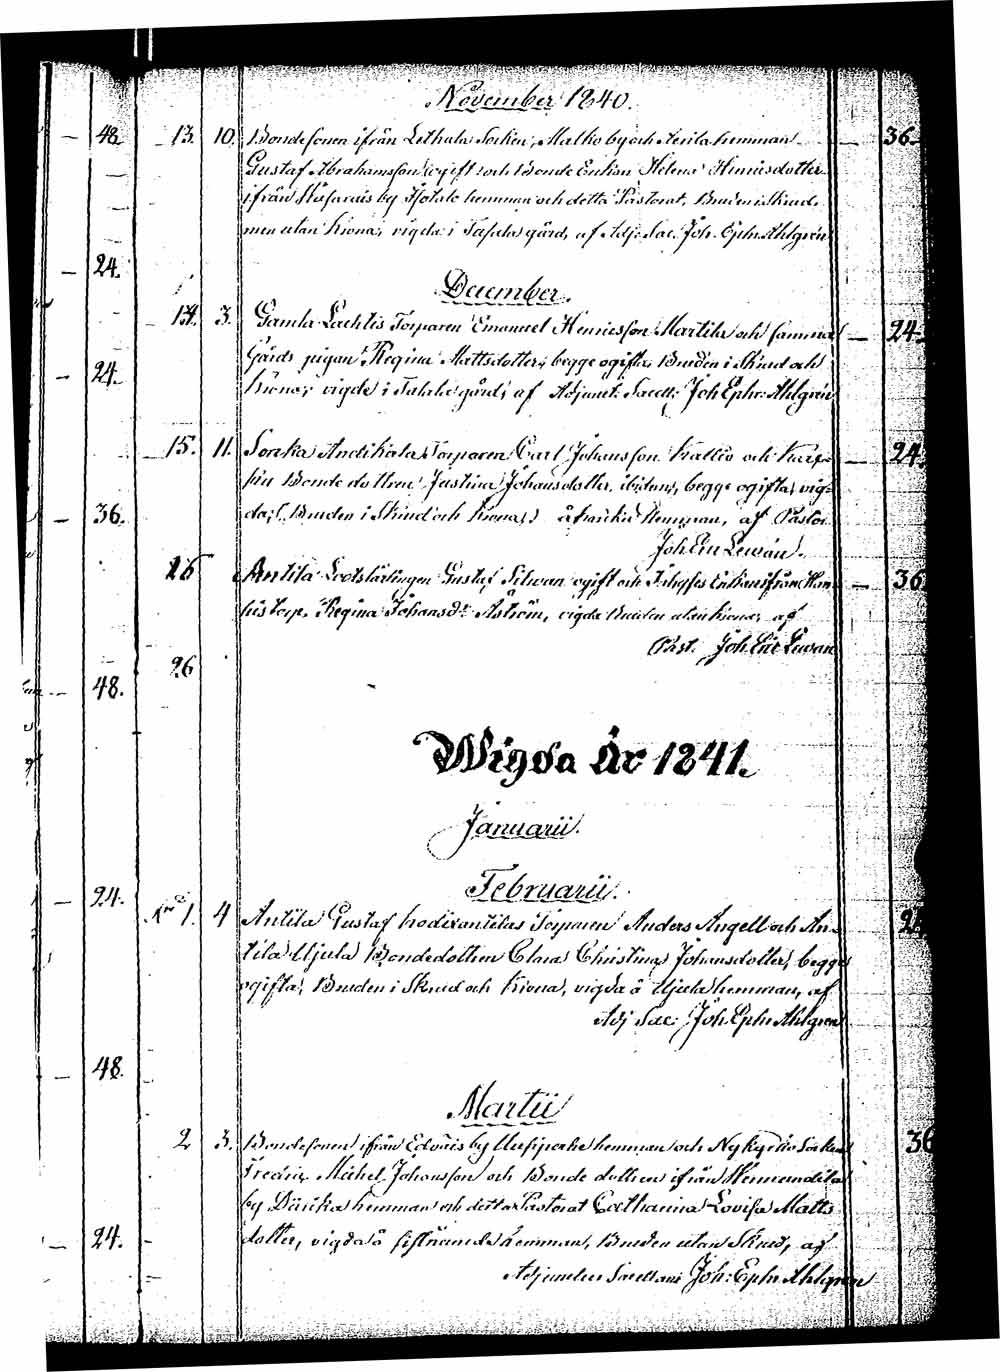 November 1840.
48. 13. 10. Bondesonen ifrån Lethala Socken, Malko by och Anila hemman 36.
Gustaf Abrahamsson ogift och Bonde Enkan Helena Henricsdotter
ifrån by hemman och detta Pastorat, Bruden i Skrud
men utan Krona, vigda i gård, af Adj. Sac. Joh. Ephr. Ahlgren
24.
December.
14. 3. Gamla Lachtis Torparen Emanuel Henricsson Martila och samma 24.
Gårds pigan Regina Mattsdotter, begge ogifta, Bruden i Skrud och
24.
Krona, vigde i gård, af Adjunct. Sacell: Joh Ephr: Ahlgren
15. 11. Sonka Andikala Torparen Carl Johansson Kallio och 24.
Bonde dottren Justina Johansdotter ibidem, begge ogifta, vig-
36. da, (Bruden i Skrud och Krona,) å hemman, af Pastor
Joh Eric Lewan.
26 Antila Lootslärlingen Gustaf Silwan ogift och Enkan ifrån 36
torp Regina Johansdr Åström, vigda Bruden utan Krona, af
Past. Joh. Eric Lewan
26
48.
Wigda År 1841.
Januarii.
Februarii.
24.
No 1. 4 Antila Gustaf Torparen Anders Angell och An- 24
tila Ujula Bondedottren Clara Christina Johansdotter, begge
ogifta, Bruden i Skrud och Krona, vigda å Ujula hemman, af
Adj Sac: Joh. Ephr Ahlgren
48.
Martii
2 3. Bondesonen ifrån Edväis by hemman och Nykyrko Socken 36
Fredric Michel Johansson och Bonde dottren ifrån
by hemman och detta Pastorat Catharina Lovisa Matts
24. dotter, vigda å sistnämnde hemman, Bruden utan Skrud, af
Adjuncten Sacellani Joh: Ephr Ahlgren